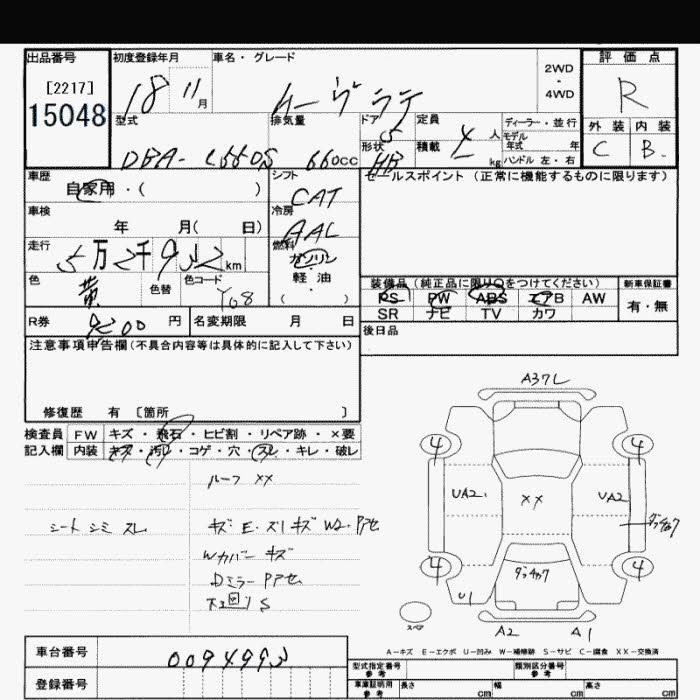 出品番号
[2217]
15048
初度登録年月
18 11月
車名・グレード
ムーヴラテ
2WD
・
4WD
評価点
R
外装 内装
C B.
型式
DBA-L660S
排気量
660cc
ドア
5
形状
HB
定員
4人
積載
kg
ディーラー・並行
モデル
年式 年
ハンドル 左・右
車歴
自家用・( )
シフト
CAT
セールスポイント (正常に機能するものに限ります)
車検
年 月( 日)
冷房
AAC
走行
5万2千932km
燃料
ガソリン
・
軽油
( )
色
黄
色替
色コード
Y08
装備品(純正品に限り○をつけてください)
PS PW ABS エアB AW
SR ナビ TV カワ
新車保証書
有・無
R券
円
名変期限 月 日
後日品
注意事項申告欄(不具合内容等は具体的に記入して下さい)
修復歴 有 [箇所 ]
検査員
記入欄
FW キズ・飛石・ヒビ割・リペア跡・×要
内装 キズ・汚れ・コゲ・穴・スレ・キレ・破レ
ルーフ ××
シート シミ スレ
キズ E・スリキズ W2・Pアセ
Wカバー キズ
Dミラー Pアセ
下回り S
A37L
4
4
UA2
××
UA2
ダッチャク
4
ダッチャク
4
U1
スペア
A2
A1
A-キズ E-エクボ U-凹み W-補修跡 S-サビ C-腐食 XX-交換済
車台番号
0094993
登録番号
型式指定番号
参考
類別区分番号
参考
車庫証明用
参考
長さ cm
幅 cm
高さ cm